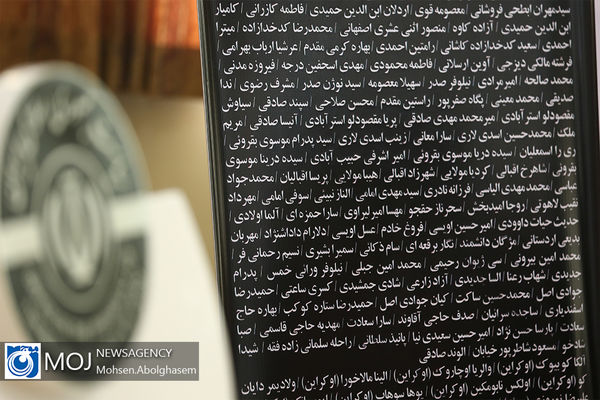 سیدمهران ابطحی فروشانی / معصومه قوی / اردلان ابن الدین حمیدی / فاطمه کازرانی / کامیار
ابن الدین حمیدی / آزاده کاوه / منصور اثنی عشری اصفهانی / محمدرضا کدخدازاده / میترا
احمدی / سعید کدخدازاده کاشانی / رامتین احمدی / بهاره کرمی مقدم / عرشیا ارباب بهرامی
فرشته مالکی دیزجی / آوین ارسلانی / فاطمه محمودی / مهدی اسحقین درچه / فیروزه مدنی /
محمد صالحه / امیر مرادی / نیلوفر صدر / سهیلا معصومه / سید نوژن صدر / مشرف رضوی / ندا
صدیقی / محمد معینی / پگاه صفرپور / راستین مقدم / محسن صلاحی / سپند صادقی / سیاوش
مقصودلو استرآبادی / میرمحمد مهدی صادقی / پریا مقصودلو استرآبادی / آنیسا صادقی / مریم
ملک / محمدحسین اسدی لاری / زینب اسدی لاری / سارا ممانی / سید پدرام موسوی بفرویی
ری را اسمعلیان / سیده درینا موسوی بفرویی / امیر اشرفی حبیب آبادی / سیده درینا موسوی
بفرویی / شاهرخ اقبالی / کردیا مولایی / شهرزاد اقبالی / هیبا مولایی / پریسا اقبالیان / محمدجواد
عباسی / محمدمهدی الیاسی / فرزانه نادری / سیدمهدی امامی / الناز نبیئی / سوفی امامی / مهرداد
نقیب لاهوتی / روجا امیدبخش / سحرناز حقجو / مهسا امیرلیراوی / سارا حمزه ای / آلما اولادی /
حدیث حیات داوودی / امیرحسین اویسی / فروغ خادم / عسل اویسی / دلارام داداشنژاد / مهربان
بدیعی اردستانی / مژگان دانشمند / نگار برقعه ای / سام ذکائی / سمیرا بشیری / نسیم رحمانی فر /
محمد امین بیروتی / سی ژیوان رحیمی / محمد امین جبلی / نیلوفر ورانی خمس / پدرام
جدیدی / شهاب رعنا / السا جدیدی / آزاد زارعی / شادی جمشیدی / کسری ساعتی / حمیدرضا
جوادی اصل / محمدحسین ساکت / کیان جوادی اصل / حمیدرضا ستاره کوکب / بهاره حاج
اسفندیاری / ساجده سرائیان / صدف حاجی آقاوند / سارا سعادت / مهدیه حاجی قاسمی / صبا
سعادت / پارسا حسن نژاد / امیرحسین سعیدی نیا / پانیذ سلطانی / راحله سلمانی زاده فقه / شیدا
شادخو / مسعود شاطرپور خیابان / الوند صادقی
(اوکراین) / والریا اوچاروک (اوکراین) / الینا مالاخورا (اوکراین) / ولادیمیر دایان
(اوکراین) / اولکس نائومکین (اوکراین) /
MOJ NEWSAGENCY
Mohsen.Abolghasem